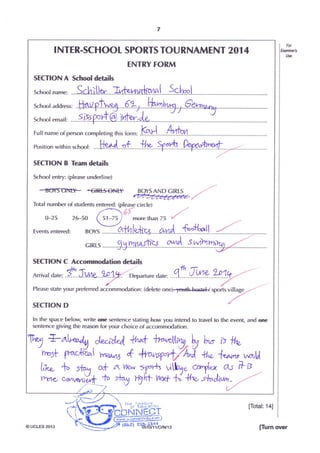 7
For
Examiner's
Use
INTER-SCHOOL SPORTS TOURNAMENT 2014
ENTRY FORM
SECTION A School details
School name: Schiller International School
School address: Hauptweg 62, Hamburg, Germany
School email:
Full name of person completing this form: Karl Anton
Position within school: Head of the Sports Department
SECTION B Team details
School entry: (please underline)
BOYS ONLY GIRLS ONLY BOYS AND GIRLS
Total number of students entered: (please circle)
65
0–25 26–50 51–75 more than 75
Events entered: BOYS athletics and football
GIRLS gymnastics and swimming
SECTION C Accommodation details
Arrival date: 5th June 2014 Departure date: 9th June 2014
Please state your preferred accommodation: (delete one) youth hostel / sports village
SECTION D
In the space below, write one sentence stating how you intend to travel to the event, and one
sentence giving the reason for your choice of accommodation.
They already decided that travelling by bus is the
most practical means of transport. And the teams would
like to stay at a new sports village complex as it is
more convenient to stay right next to the stadium.
[Total: 14]
CONNECT
© UCLES 2013
[Turn over